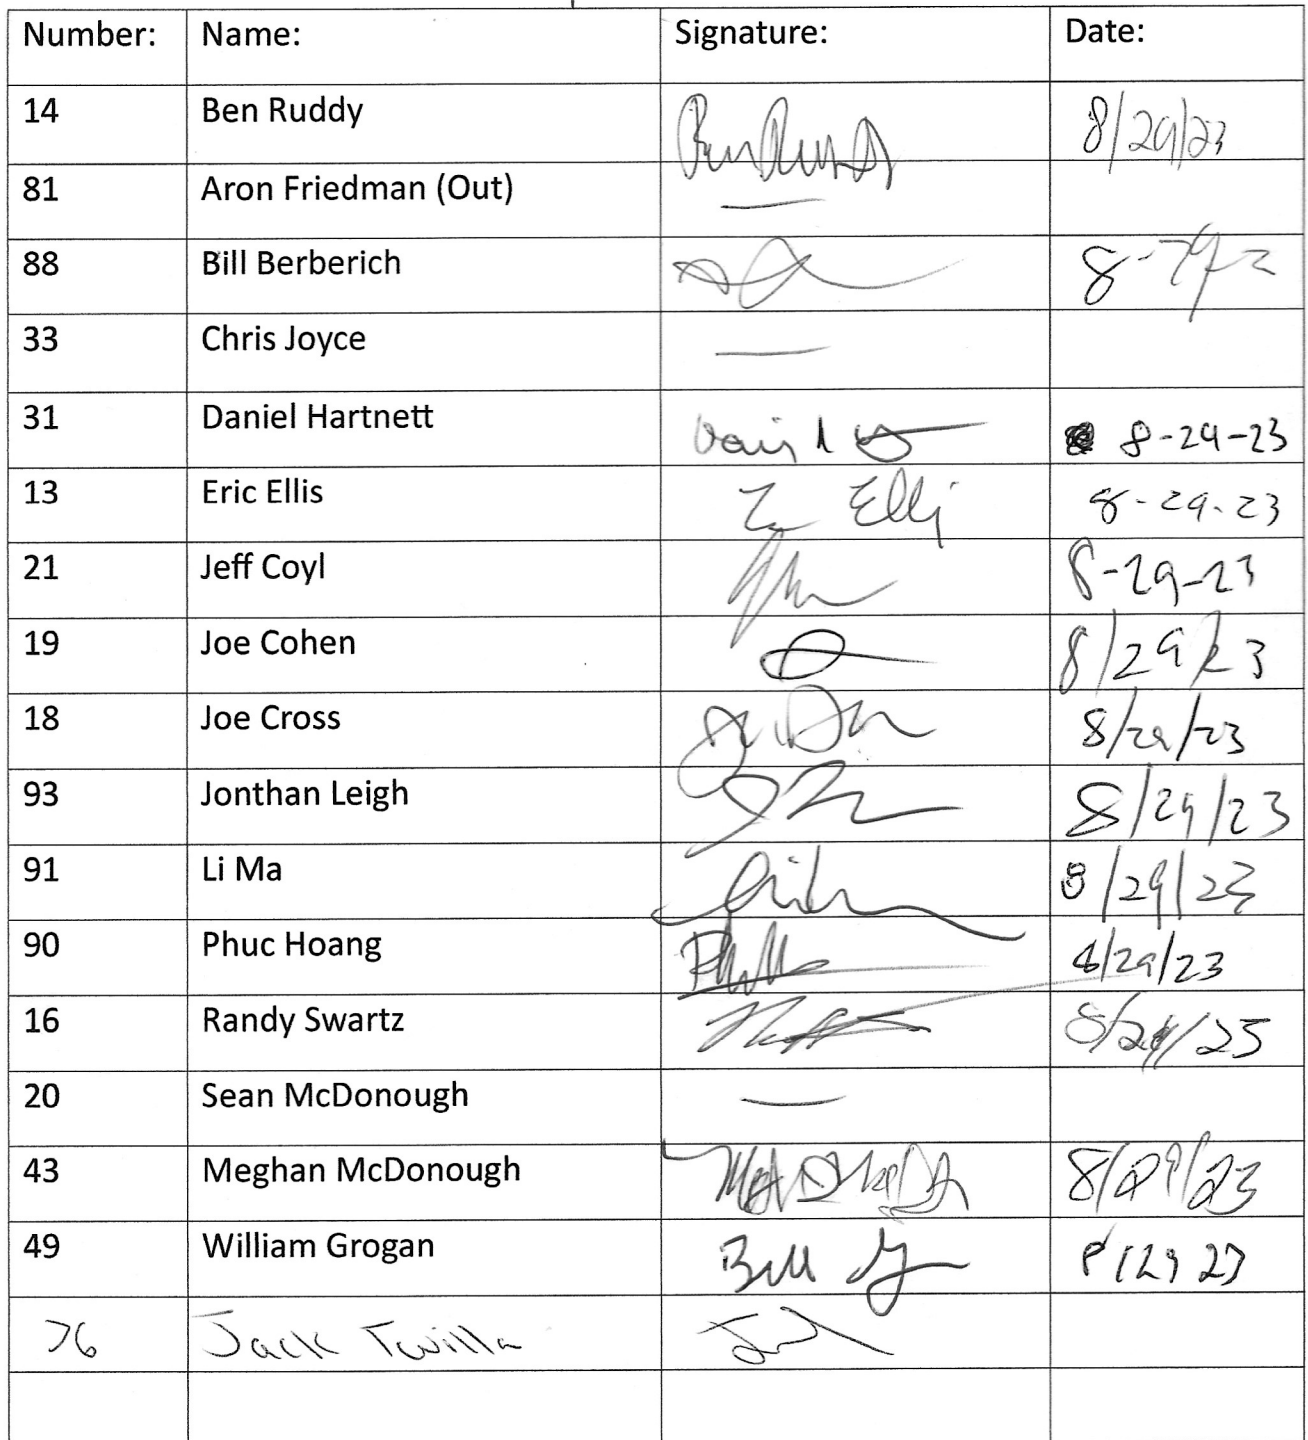 Number: Name: Signature: Date:
14 Ben Ruddy 8/29/23
81 Aron Friedman (Out) —
88 Bill Berberich
33 Chris Joyce —
31 Daniel Hartnett 8-29-23
13 Eric Ellis Ellis 8-29-23
21 Jeff Coyl 8-29-23
19 Joe Cohen 8/29/23
18 Joe Cross 8/29/23
93 Jonthan Leigh 8/29/23
91 Li Ma 8/29/23
90 Phuc Hoang 8/29/23
16 Randy Swartz
20 Sean McDonough —
43 Meghan McDonough 8/29/23
49 William Grogan Bill G 8/29 23
76 Jack Twilla